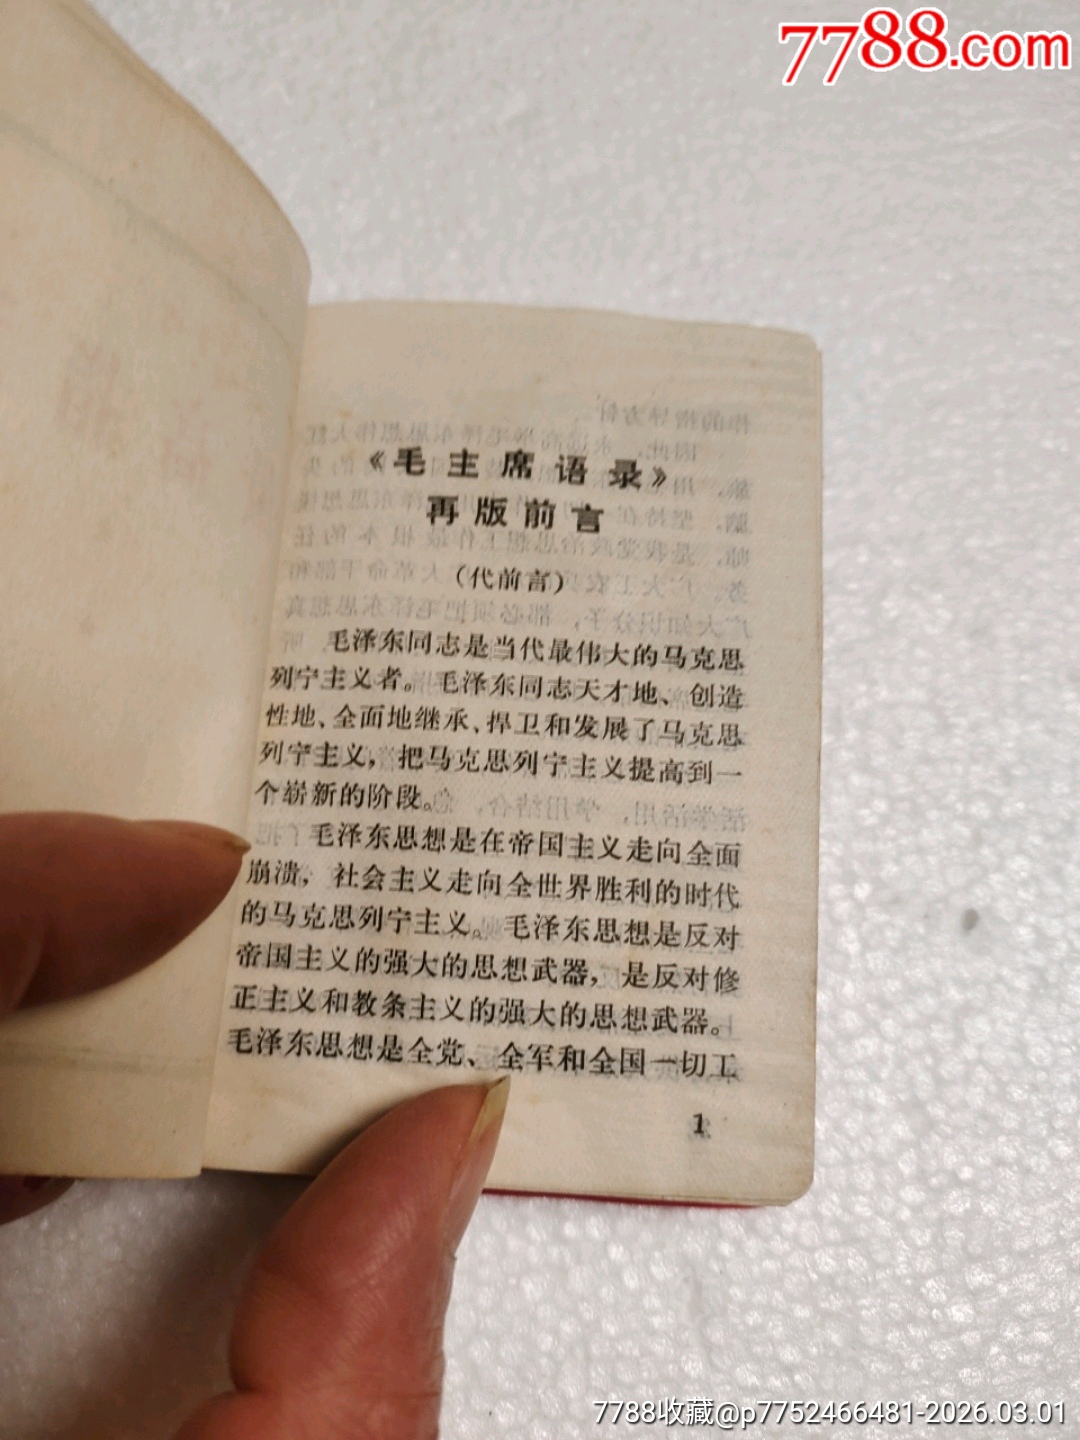 7788.com
《毛主席语录》
再版前言
（代前言）
毛泽东同志是当代最伟大的马克思
列宁主义者。毛泽东同志天才地、创造
性地、全面地继承、捍卫和发展了马克思
列宁主义，把马克思列宁主义提高到一
个崭新的阶段。
毛泽东思想是在帝国主义走向全面
崩溃，社会主义走向全世界胜利的时代
的马克思列宁主义。毛泽东思想是反对
帝国主义的强大的思想武器，是反对修
正主义和教条主义的强大的思想武器。
毛泽东思想是全党、全军和全国一切工
1
7788收藏@p7752466481-2026.03.01